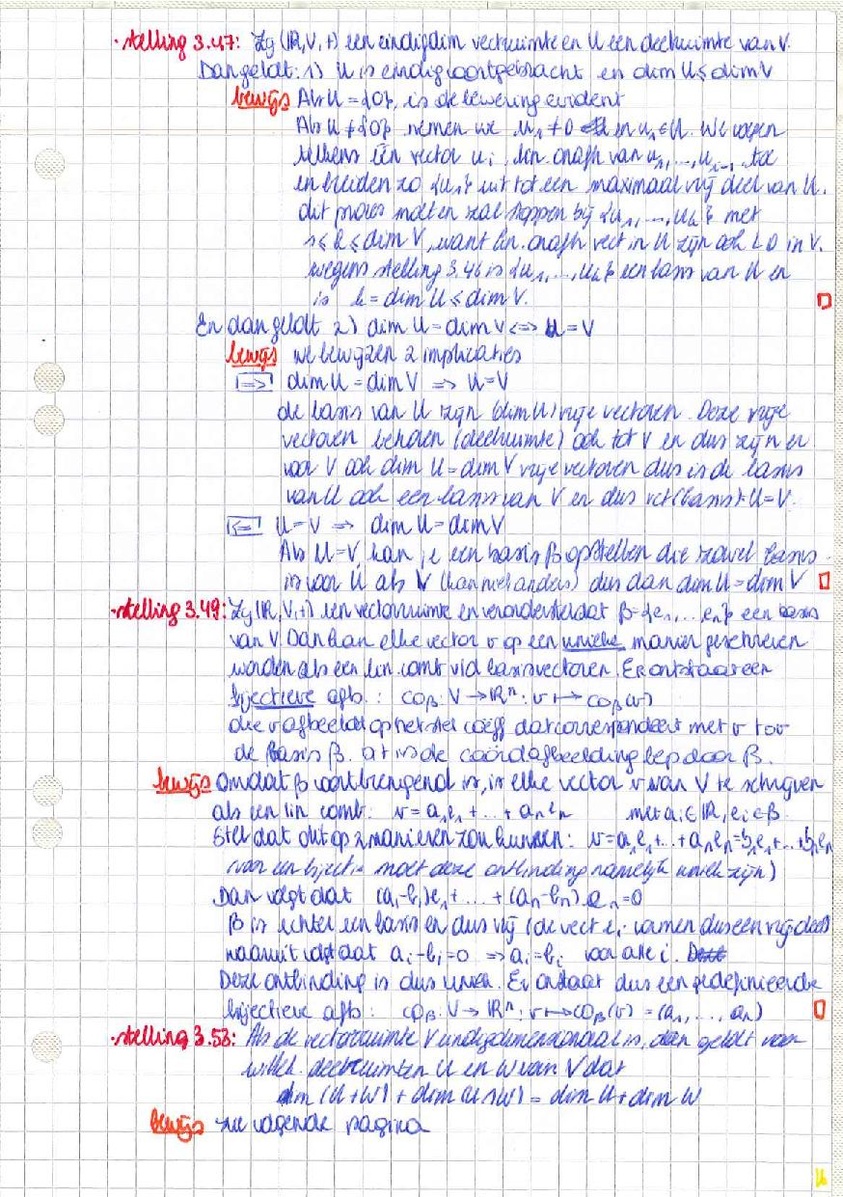 · stelling 3.47: Zij (ℝ,V,+) een eindigdim vectruimte en U een deelruimte van V.
Dan geldt: 1) U is eindig voortgebracht en dim U ≤ dim V
bewijs Als U = {0}, is de bewering evident
Als U ≠ {0} nemen we u₁ ≠ 0 en u₁ ∈ U. We voegen
telkens één vector uᵢ, lin. onafh van u₁,...,uᵢ₋₁ toe
en breiden zo {u₁} uit tot een maximaal vrij deel van U.
dit proces moet en zal stoppen bij {u₁,...,uₖ} met
1 ≤ k ≤ dim V, want lin. onafh vect in U zijn ook LO in V.
wegens stelling 3.46 is {u₁,...,uₖ} een basis van U en
is k = dim U ≤ dim V. □
En dan geldt 2) dim U = dim V <=> U = V
bewijs we bewijzen 2 implicaties
[=>] dim U = dim V => U = V
de basis van U zijn (dim U) vrije vectoren. Deze vrije
vectoren behoren (deelruimte) ook tot V en dus zijn er
voor V ook dim U = dim V vrije vectoren dus is de basis
van U ook een basis van V en dus vct(basis) = U = V.
[<=] U = V => dim U = dim V
Als U = V, kan je een basis β opstellen die zowel basis
is voor U als V (kan niet anders) dus dan dim U = dim V □
· stelling 3.49: Zij (ℝ,V,+) een vectorruimte en veronderstel dat β={e₁,...,eₙ} een basis
van V. Dan kan elke vector v op een unieke manier geschreven
worden als een lin comb v/d basisvectoren. Er ontstaat een
bijectieve afb.: co_β: V → ℝⁿ: v ↦ co_β(v)
die v afbeeldt op het stel coëff dat correspondeert met v tov
de basis β. at is de coördafbeelding bep door β.
bewijs omdat β voortbrengend is, is elke vector v van V te schrijven
als een lin comb: v = a₁e₁ + ... + aₙeₙ met aᵢ ∈ ℝ, eᵢ ∈ β.
Stel dat dit op 2 manieren zou kunnen: v = a₁e₁+...+aₙeₙ = b₁e₁+...+bₙeₙ
(voor een bijectie moet deze ontbinding namelijk uniek zijn)
Dan volgt dat (a₁-b₁)e₁ + ... + (aₙ-bₙ)eₙ = 0
β is echter een basis en dus vrij (de vect eᵢ vormen dus een vrij deel)
waaruit volgt dat aᵢ-bᵢ=0 => aᵢ=bᵢ voor alle i.
Deze ontbinding is dus uniek. Er ontstaat dus een gedefinieerde
bijectieve afb: co_β: V → ℝⁿ: v ↦ co_β(v) = (a₁,...,aₙ) □
· stelling 3.53: Als de vectorruimte V eindigdimensionaal is, dan geldt voor
willek. deelruimten U en W van V dat
dim (U+W) + dim (U∩W) = dim U + dim W
bewijs zie volgende pagina